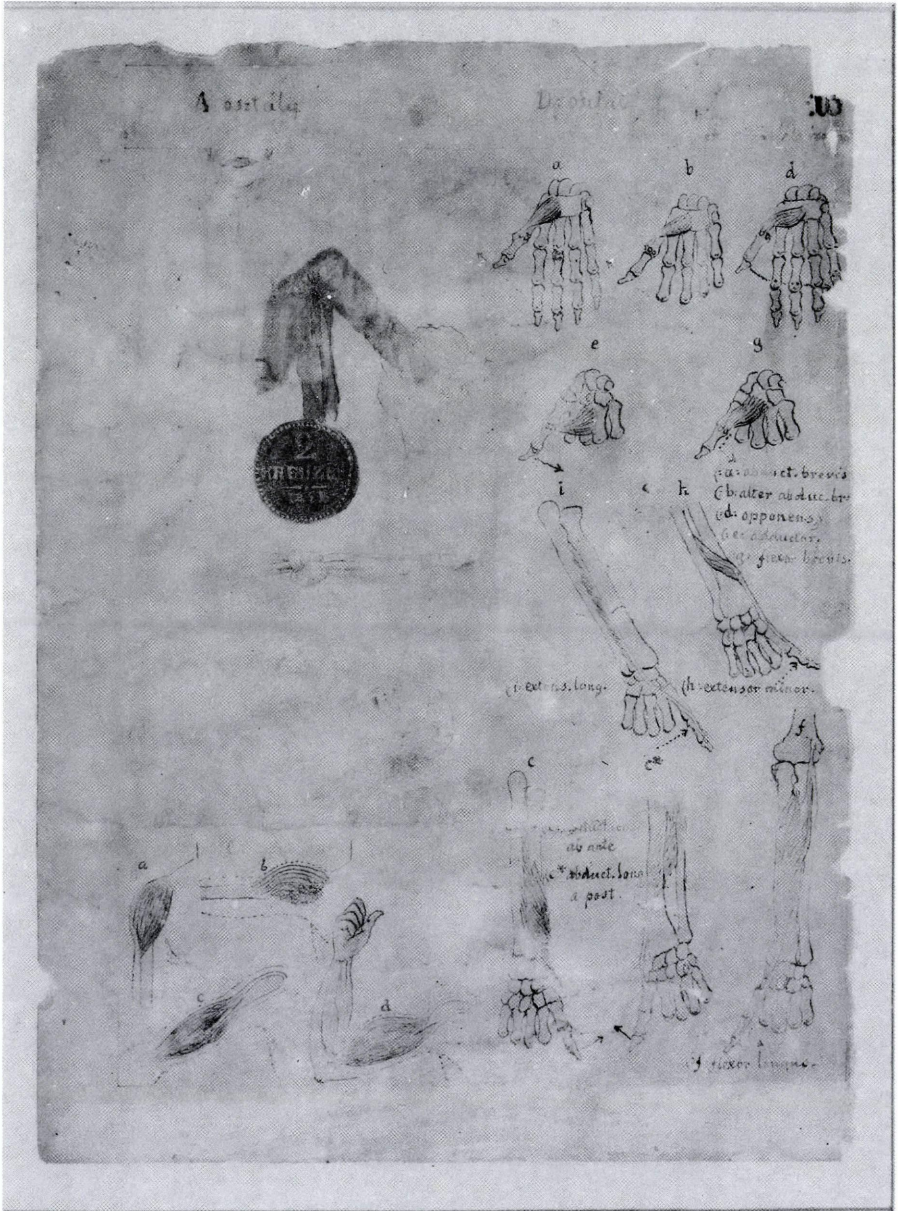 A osztály
a
b
d
e
g
(:a: abduct. brevis
(:b: alter abduc. br
(:d: opponens)
(:e: adductor.
g: flexor brevis.
2
KREUZER
i
h
(:i: extens. long.
(h: extensor minor.
c*
c
f
ab ante
c* abduct. long
a post.
a
b
c
d
f flexor longus.